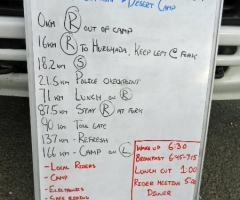 DESERT CAMP
0KM R OUT OF CAMP
16KM R TO HURGHADA, KEEP LEFT @ FORK
18.2KM S
21.5KM POLICE CHECKPOINT
71KM LUNCH ON R
87.5KM STAY R AT FORK
90KM TOLL GATE
137KM - REFRESH
166KM - CAMP ON L
- LOCAL RIDERS
- CAMP
- ELECTRONICS
WAKE UP 6:30
BREAKFAST 6:45-7:15
LUNCH CUT 1:00
RIDER MEETING 5:00
DINNER